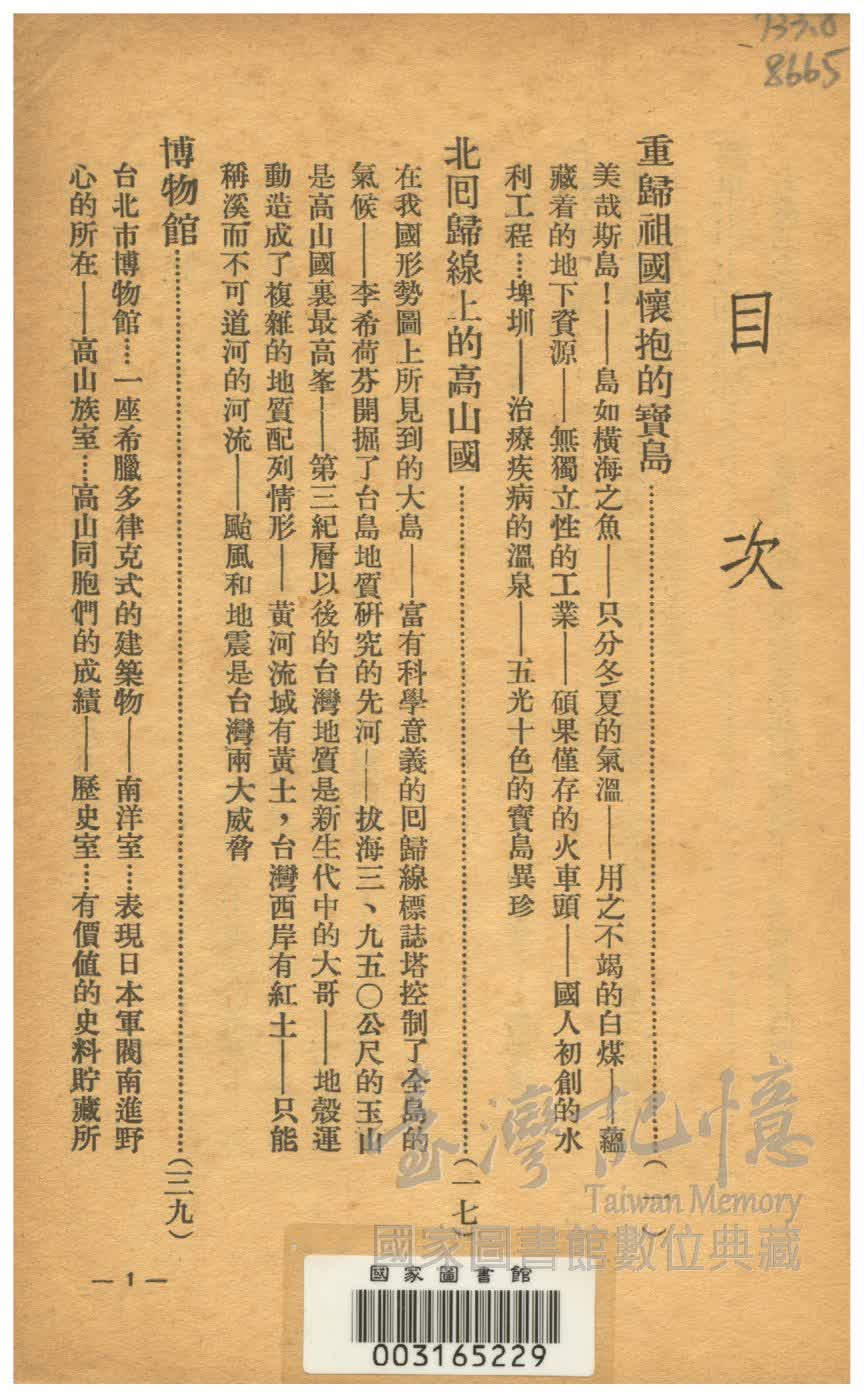 733.8
8665
目次
重歸祖國懷抱的寶島……………(一)
美哉斯島！——島如橫海之魚——只分冬夏的氣溫——用之不竭的白煤——蘊
藏着的地下資源——無獨立性的工業——碩果僅存的火車頭——國人初創的水
利工程……埤圳——治療疾病的溫泉——五光十色的寶島異珍
北囘歸線上的高山國……………(一七)
在我國形勢圖上所見到的大島——富有科學意義的囘歸線標誌塔控制了全島的
氣候——李希荷芬開掘了台島地質研究的先河——拔海三、九五〇公尺的玉山
是高山國裏最高峯——第三紀層以後的台灣地質是新生代中的大哥——地殼運
動造成了複雜的地質配列情形——黃河流域有黃土，台灣西岸有紅土——只能
稱溪而不可道河的河流——颱風和地震是台灣兩大威脅
博物館……………(三九)
台北市博物館……一座希臘多律克式的建築物——南洋室……表現日本軍閥南進野
心的所在——高山族室……高山同胞們的成績——歷史室……有價值的史料貯藏所
— 1 —
臺灣記憶
Taiwan Memory
國家圖書館數位典藏
國家圖書館
003165229